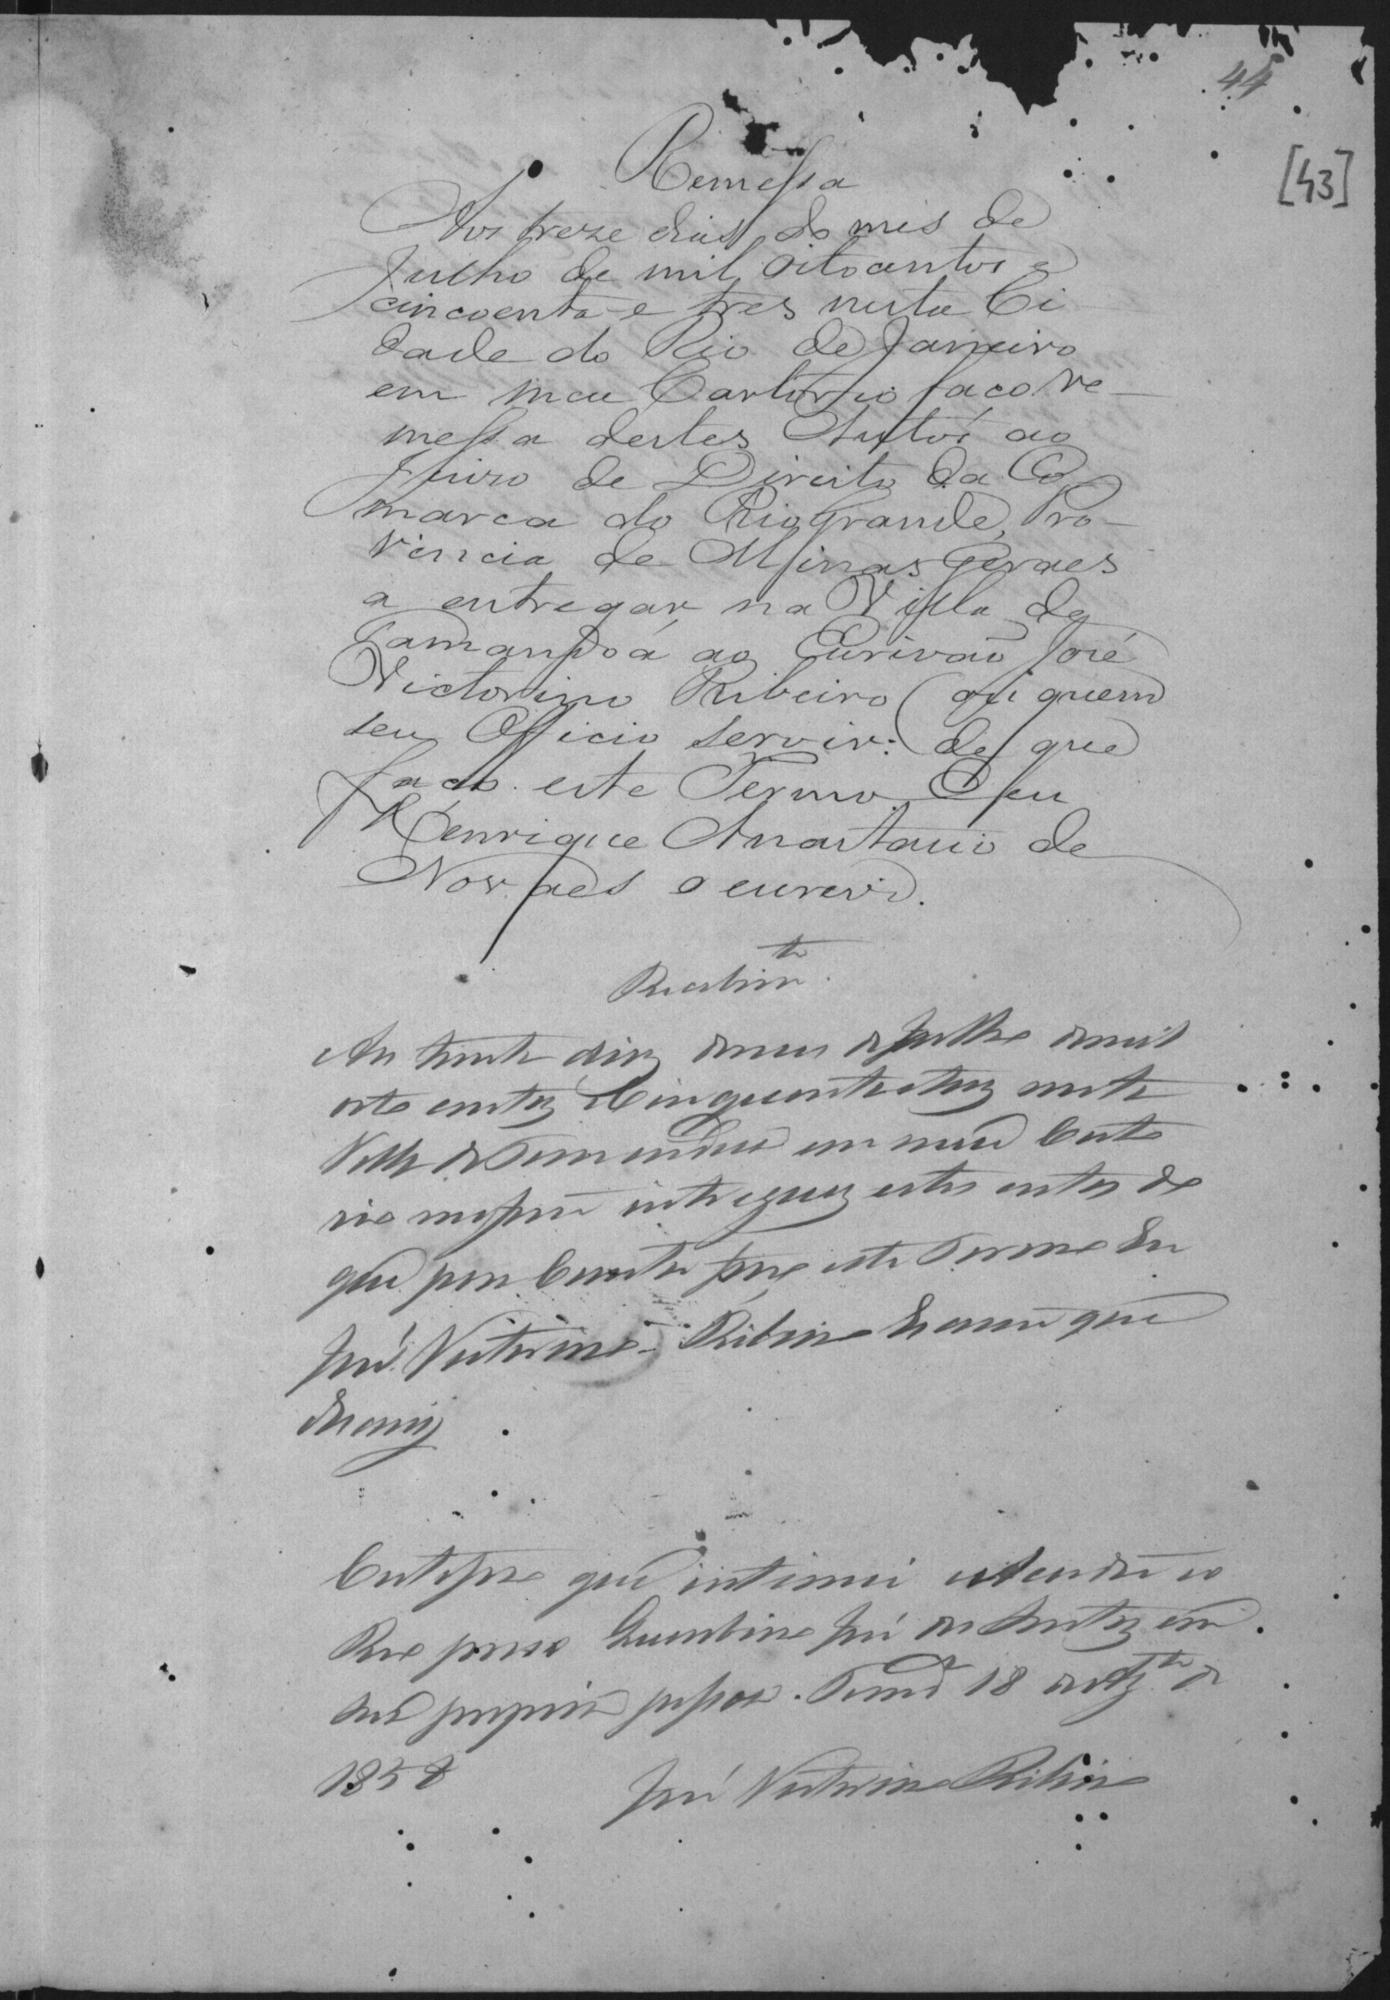 44
[43]
Remessa
Aos treze dias do mes de
Julho de mil oitocentos e
cincoenta e tres nesta Ci
dade do Rio de Janeiro
em meu Cartorio faço re-
messa destes Autos ao
Juizo de Direito da Co
marca do Rio Grande, Pro-
vincia de Minas Geraes
a entregar na Villa de
Tamanduá ao Escrivão José
Victorino Ribeiro (ou quem
seu Officio servir: de que
faço este Termo. E eu
Henrique Anastacio de
Novaes o escrevi.
Recebim.to
Aos trinta dias do mes de Julho de mil
oito centos e Cinquenta e tres nesta
Villa de Tamandua em meu Carto
rio me forão entregues estes autos do
que por Constar faço este Termo Eu
José Victorino Ribeiro Escrivão que
Escrevy
Certefico que intimei
Reo preso José dos Santos em
sua propria pessoa. Tamd.a 18 de de
185
José Victorino Ribeiro